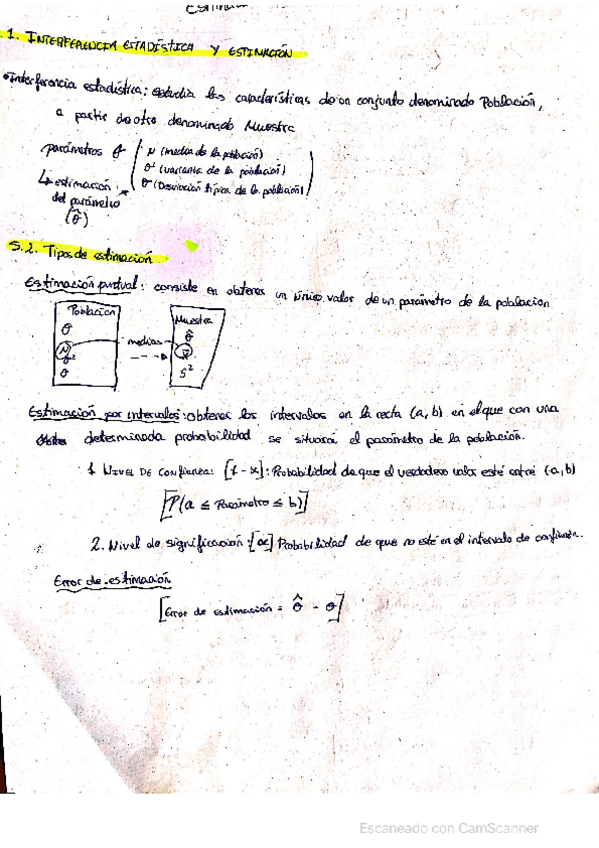 1. INTERFERENCIA ESTADÍSTICA Y ESTIMACIÓN
Interferencia estadística: estudia las características de un conjunto denominado Población,
a partir de otro denominado Muestra
parámetros θ
μ (media de la población)
σ² (varianza de la población)
σ (Desviación típica de la población)
↳ estimación
del parámetro
(θ̂)
5.2. Tipos de estimación
Estimación puntual: consiste en obtener un único valor de un parámetro de la poblacion
Poblacion
Muestra
θ
θ̂
μ
medias
x̄
σ²
S²
σ
Estimación por intervalos: obtener los intervalos en la recta (a, b) en el que con una
determinada probabilidad se situará el parámetro de la población.
1. NIVEL DE CONFIANZA: [1 - α]: Probabilidad de que el verdadero valor esté entre (a, b)
[P(a ≤ Parámetro ≤ b)]
2. Nivel de significación: [α] Probabilidad de que no esté en el intervalo de confianza.
Error de estimación
[Error de estimación = θ̂ - θ]
Escaneado con CamScanner